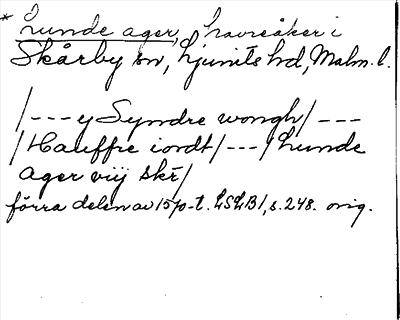 * Lunde ager, havreåker i
Skårby sn, Ljunits hd, Malm. l.
/---y Syndre wongh/---
/Hauffre iordt/---/Lunde
ager viij skr/
förra delen av 1570-t. LSLB1, s. 248. orig.